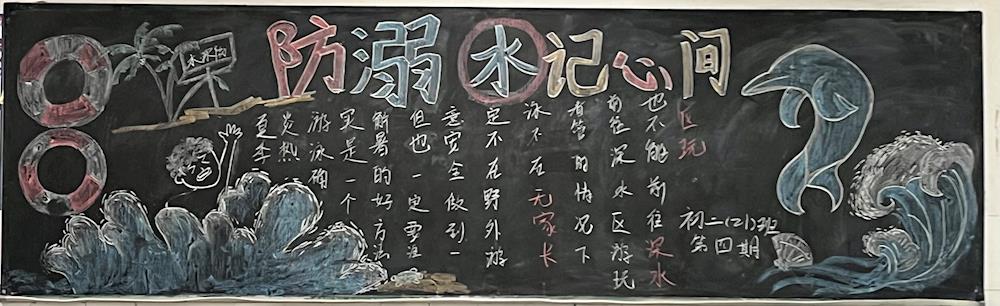 防溺水记心间
夏季
炎热
游泳确
实是一个
解暑的好方法
但也一定要注
意安全做到一
定不在野外游
泳不在无家长
看管的情况下
前往深水区游玩
也不能前往深水
区玩
初二(21)班
第四期